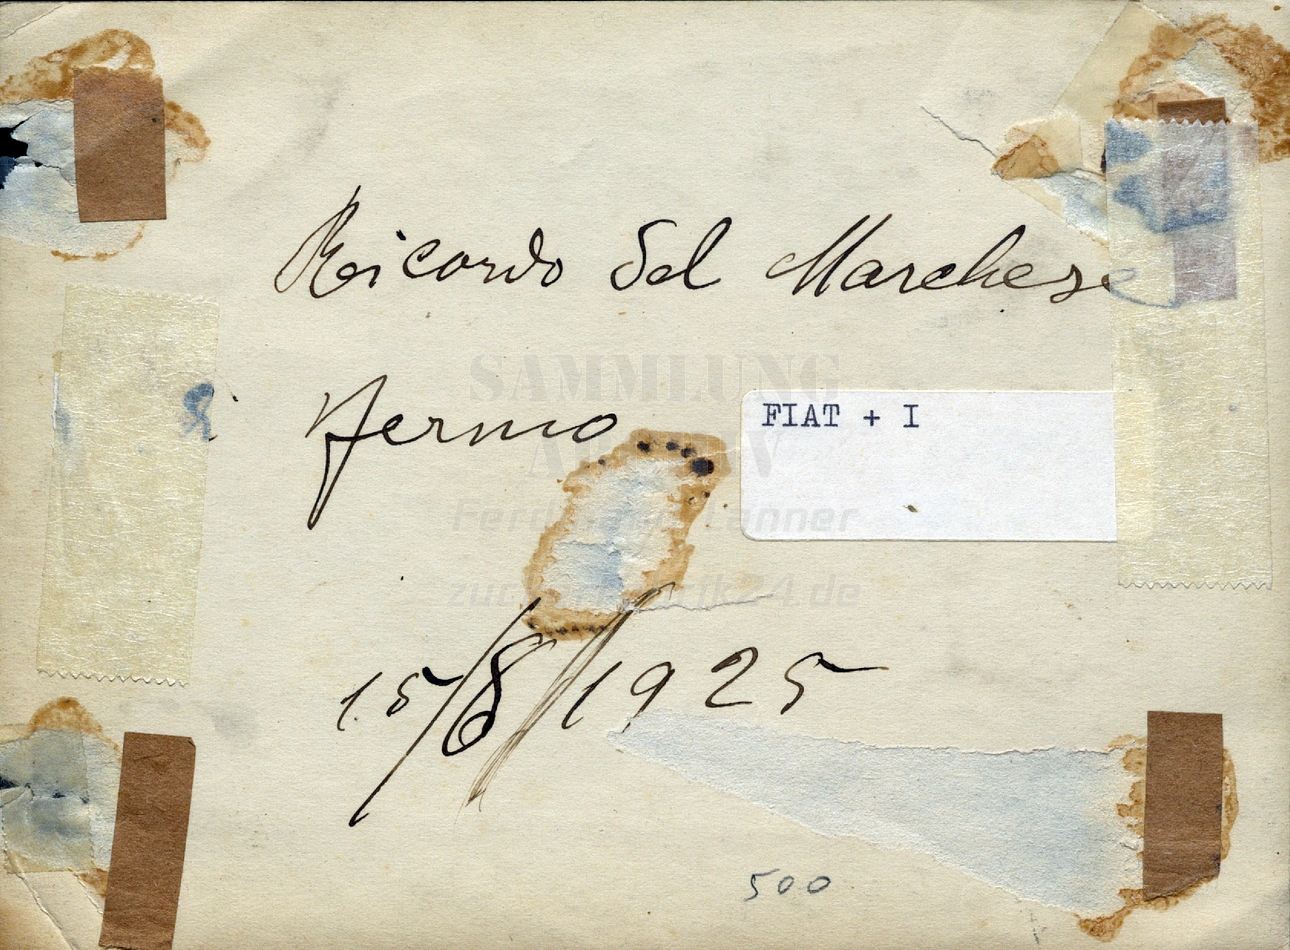 Ricordo del Marchese
Fermo
FIAT + I
SAMMLUNG
ARCHIV
Ferdinand Lanner
zuckerfabrik24.de
15/8/1925
500